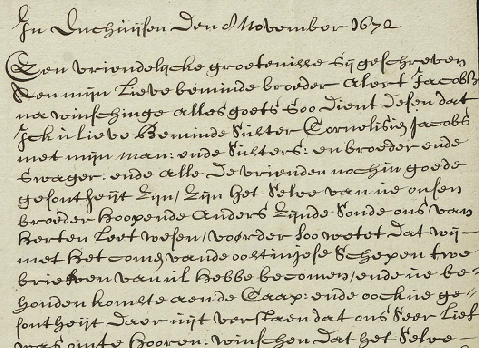 In Enchuijsen Den 8 November 1672
Een vriendelijcke groetenisse sij geschreven
aen mijn Lieve beminde broeder Alert Jacobß
na winschinge alles goets Soo dient desen dat
Ick u lieve Beminde Suster Cornelisie Jacobs
met mijn man: ende Susters: en broeder ende
Swager. ende alle De vrienden noch in goede
gesontheijt sijn / sijn het Selve van ue onsen
broeder hoopende anders sijnde Soude ons van
herten Leet wesen / voorder soo wetet Dat wij
met het comen vande oostinjese Schepen twe
brieven van u hebbe becomen / ende ue be-
houden komste aen de Caap: ende oock ue ge-
sontheijt daer uijt verstaen dat ons seer Lief
was om te hooren. winschen dat het Selve